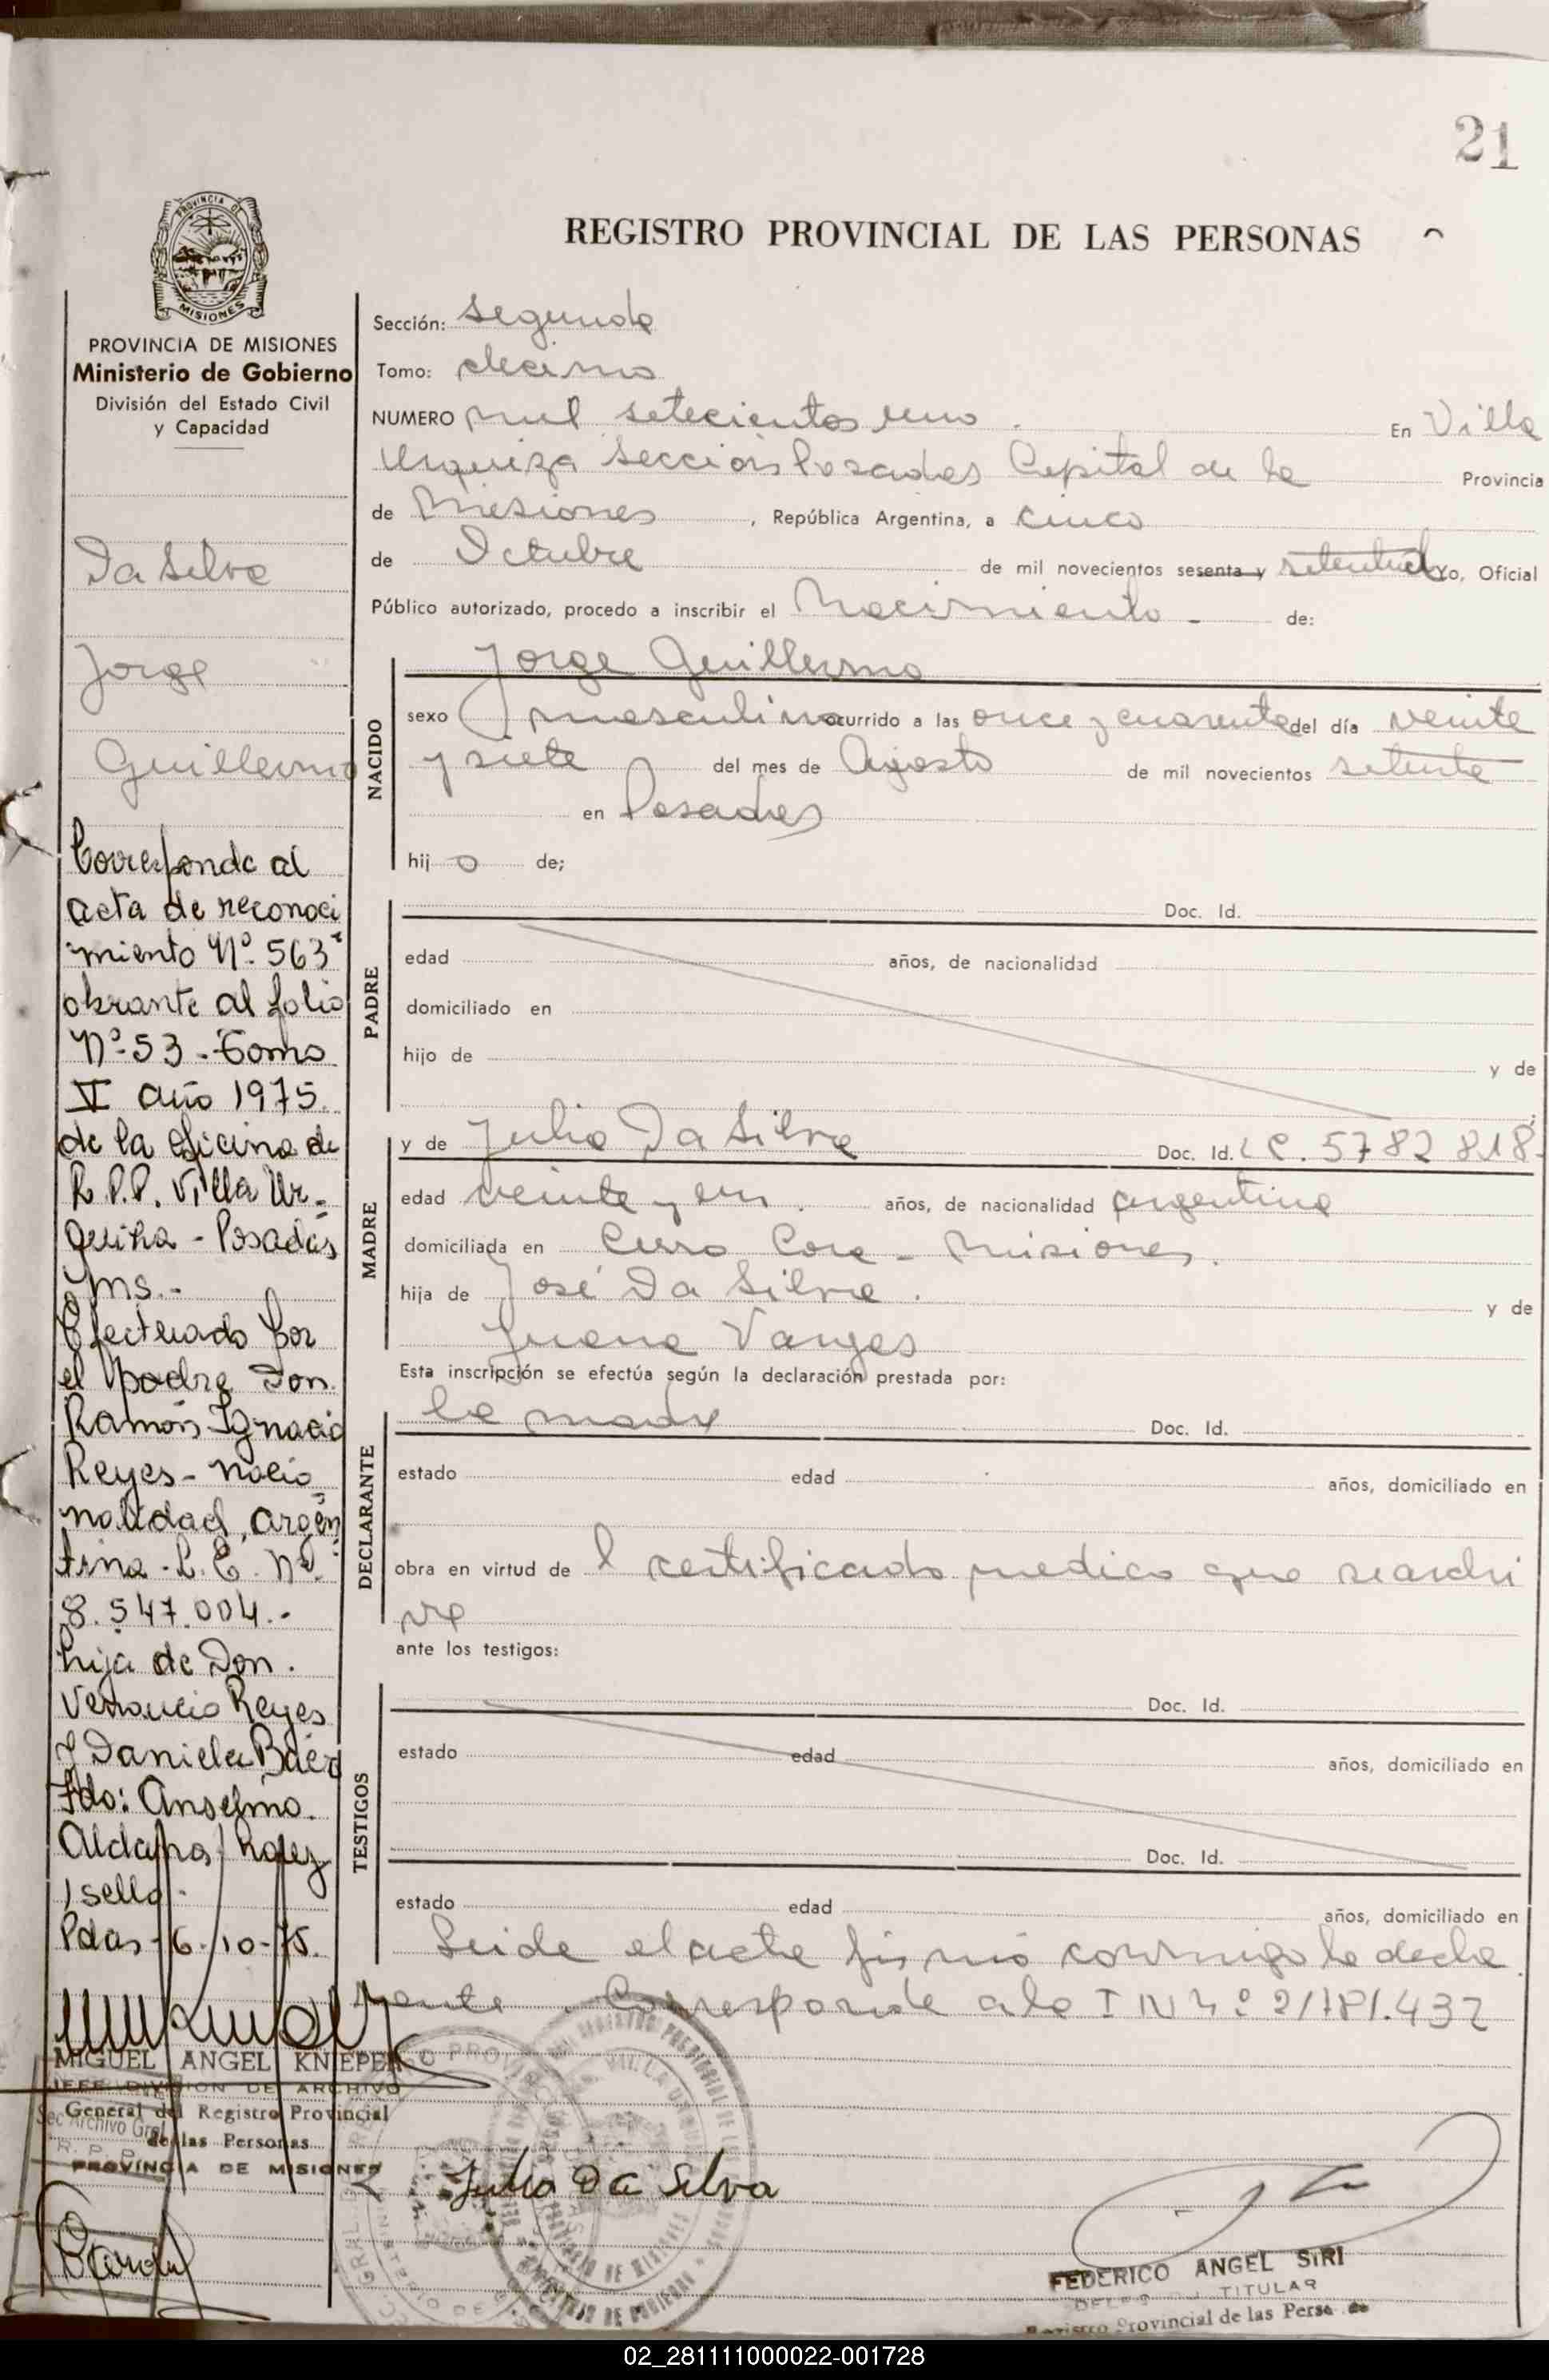 21
REGISTRO PROVINCIAL DE LAS PERSONAS
PROVINCIA DE
MISIONES
PROVINCIA DE MISIONES
Ministerio de Gobierno
División del Estado Civil
y Capacidad
Da Silva
Jorge
Guillermo
Corresponde al
acta de reconoci
miento Nº 563
obrante al folio
Nº 53 - Tomo
V año 1975.
de la oficina de
R.P.P. Villa Ur-
quiza - Posadas
Mns.-
Efectuado por
el padre Don
Ramón Ignacio
Reyes - nacio
nalidad argen
tina - L.E. Nº
8.547.004.-
hijo de Don.
Venancio Reyes
y Daniela Báez
Fdo: Anselmo.
Aldana
y sello.
Pdas - 6-10-75.
MIGUEL ANGEL KNIEPER
JEFE DIVISION DE ARCHIVO
General del Registro Provincial
de las Personas
PROVINCIA DE MISIONES
Sec Archivo Gral
R. P. P.
Sección: segunda
Tomo: decimo
NUMERO mil setecientos uno. En Villa
Urquiza Sección Posadas Capital de la Provincia
de Misiones, República Argentina, a cinco
de Octubre de mil novecientos sesenta y setenta yo, Oficial
Público autorizado, procedo a inscribir el Nacimiento - de:
NACIDO
Jorge Guillermo
sexo masculino ocurrido a las once y cuarenta del día veinte
y siete del mes de Agosto de mil novecientos setenta
en Posadas
hijo de;
PADRE
Doc. Id.
edad años, de nacionalidad
domiciliado en
hijo de y de
MADRE
y de Julia Da Silva Doc. Id. LC. 5782818-
edad veinte y un. años, de nacionalidad argentina
domiciliada en Cerro Cora - Misiones.
hija de José Da Silva. y de
Juana Varges
Esta inscripción se efectúa según la declaración prestada por:
DECLARANTE
la madre Doc. Id.
estado edad años, domiciliado en
obra en virtud de l certificado medico que searchi
va
ante los testigos:
TESTIGOS
Doc. Id.
estado edad años, domiciliado en
Doc. Id.
estado edad años, domiciliado en
Leida el acta firmó conmigo la decla
rante. Corresponde a la I N Nº 2/181.432
Julia Da Silva
FEDERICO ANGEL SIRI
TITULAR
Registro Provincial de las Perso
02_281111000022-001728